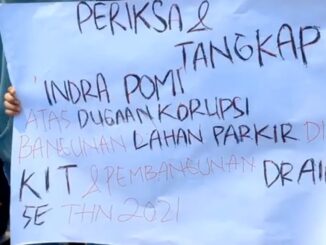 PERIKSA &
TANGKAP
'INDRA POMI'
ATAS DUGAAN KORUPSI
BANGUNAN LAHAN PARKIR DI
KIT & PEMBANGUNAN DRAI
SE THN 2021